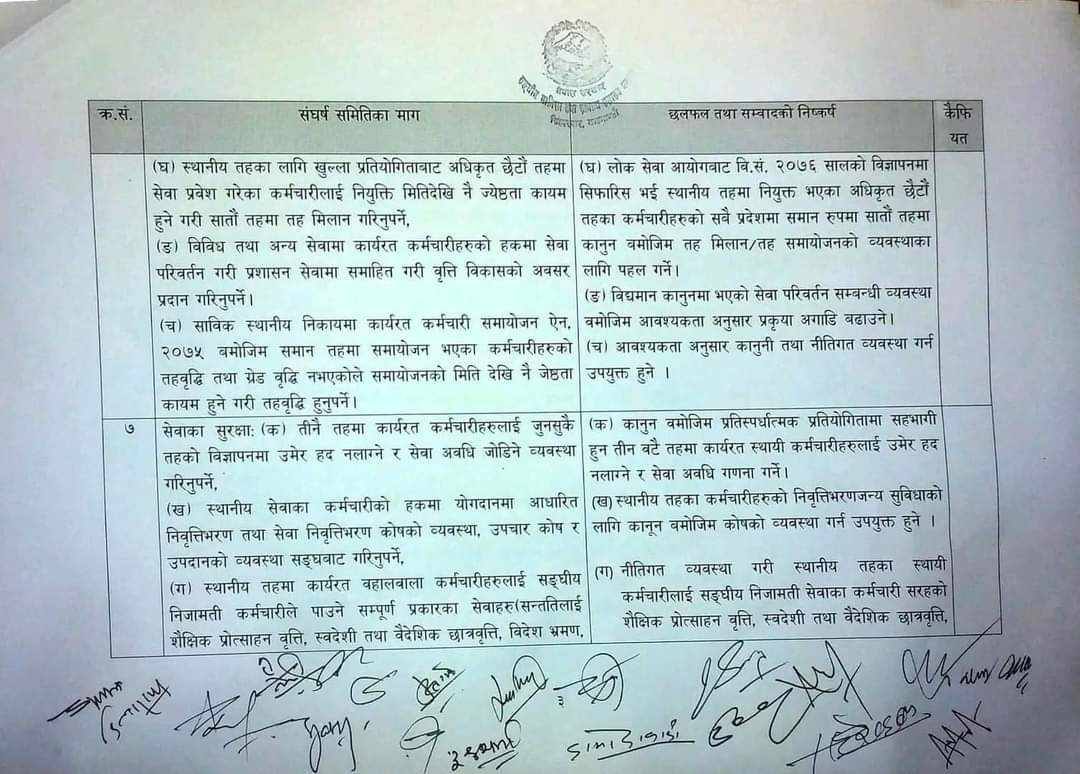 नेपाल सरकार
क्र.सं.
संघर्ष समितिका माग
छलफल तथा सम्बादको निष्कर्ष
कैफि
यत
(घ) स्थानीय तहका लागि खुल्ला प्रतियोगिताबाट अधिकृत छैटौं तहमा
सेवा प्रवेश गरेका कर्मचारीलाई नियुक्ति मितिदेखि नै ज्येष्ठता कायम
हुने गरी सातौं तहमा तह मिलान गरिनुपर्ने,
(ङ) विविध तथा अन्य सेवामा कार्यरत कर्मचारीहरुको हकमा सेवा
परिवर्तन गरी प्रशासन सेवामा समाहित गरी वृत्ति विकासको अवसर
प्रदान गरिनुपर्ने।
(च) साविक स्थानीय निकायमा कार्यरत कर्मचारी समायोजन ऐन,
२०७५ बमोजिम समान तहमा समायोजन भएका कर्मचारीहरुको
तहवृद्धि तथा ग्रेड वृद्धि नभएकोले समायोजनको मिति देखि नै जेष्ठता
कायम हुने गरी तहवृद्धि हुनुपर्ने।
(घ) लोक सेवा आयोगबाट वि.सं. २०७६ सालको विज्ञापनमा
सिफारिस भई स्थानीय तहमा नियुक्त भएका अधिकृत छैटौं
तहका कर्मचारीहरुको सवै प्रदेशमा समान रुपमा सातौं तहमा
कानुन वमोजिम तह मिलान/तह समायोजनको व्यवस्थाका
लागि पहल गर्ने।
(ङ) विद्यमान कानुनमा भएको सेवा परिवर्तन सम्बन्धी व्यवस्था
वमोजिम आवश्यकता अनुसार प्रकृया अगाडि बढाउने।
(च) आवश्यकता अनुसार कानुनी तथा नीतिगत व्यवस्था गर्न
उपयुक्त हुने ।
७
सेवाका सुरक्षा: (क) तीनै तहमा कार्यरत कर्मचारीहरुलाई जुनसुकै
तहको विज्ञापनमा उमेर हद नलाग्ने र सेवा अवधि जोडिने व्यवस्था
गरिनुपर्ने,
(ख) स्थानीय सेवाका कर्मचारीको हकमा योगदानमा आधारित
निवृत्तिभरण तथा सेवा निवृत्तिभरण कोषको व्यवस्था, उपचार कोष र
उपदानको व्यवस्था सङ्घबाट गरिनुपर्ने,
(ग) स्थानीय तहमा कार्यरत वहालवाला कर्मचारीहरुलाई सङ्घीय
निजामती कर्मचारीले पाउने सम्पूर्ण प्रकारका सेवाहरु(सन्ततिलाई
शैक्षिक प्रोत्साहन वृत्ति, स्वदेशी तथा वैदेशिक छात्रवृत्ति, विदेश भ्रमण,
(क) कानुन वमोजिम प्रतिस्पर्धात्मक प्रतियोगितामा सहभागी
हुन तीन वटै तहमा कार्यरत स्थायी कर्मचारीहरुलाई उमेर हद
नलाग्ने र सेवा अवधि गणना गर्ने।
(ख) स्थानीय तहका कर्मचारीहरुको निवृत्तिभरणजन्य सुविधाको
लागि कानून वमोजिम कोषको व्यवस्था गर्न उपयुक्त हुने ।
(ग) नीतिगत व्यवस्था गरी स्थानीय तहका स्थायी
कर्मचारीलाई सङ्घीय निजामती सेवाका कर्मचारी सरहको
शैक्षिक प्रोत्साहन वृत्ति, स्वदेशी तथा वैदेशिक छात्रवृत्ति,